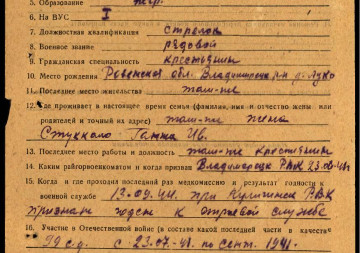 5. Образование негр.
6. На ВУС I
7. Должностная квалификация стрелок
8. Военное звание рядовой
9. Гражданская специальность крестьянин
10. Место рождения Ровенская обл. Владимирец. р-н д.
11. Последнее место жительства там-же
12. Где проживает в настоящее время семья (фамилия, имя и отчество жены или
родителей и точный их адрес) там-же жена
Ив.
13. Последнее место работы и должность там-же крестьянин
14. Каким райгорвоенкоматом и когда призван РВК 23.06.41г.
15. Когда и где проходил последний раз медкомиссию и результат годности к
военной службе 13.09.44. при РВК
признан годен к строевой службе
16. Участие в Отечественной войне (в составе какой последней части в качестве
99 с.д. с 23.07-41. по сент. 1941.